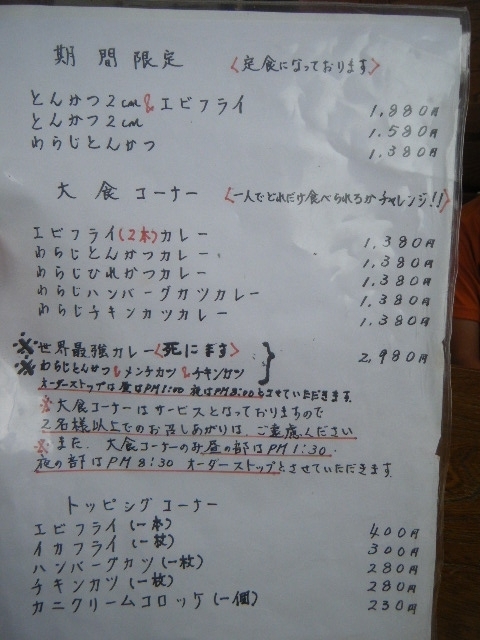 期間限定 〈定食になっております〉
とんかつ2cm&エビフライ 1,880円
とんかつ2cm 1,580円
わらじとんかつ 1,380円
大食コーナー 〈一人でどれだけ食べられるかチャレンジ!!〉
エビフライ(2本)カレー 1,380円
わらじとんかつカレー 1,380円
わらじひれかつカレー 1,380円
わらじハンバーグカツカレー 1,380円
わらじチキンカツカレー 1,380円
※世界最強カレー〈死にます〉
※わらじとんかつ&メンチカツ&チキンカツ } 2,980円
オーダーストップは昼はPM1:00 夜はPM8:00とさせていただきます.
※大食コーナーはサービスとなっておりますので
2名様以上でのお召しあがりは、ご遠慮ください
※また、大食コーナーのみ昼の部はPM1:30.
夜の部はPM8:30 オーダーストップとさせていただきます.
トッピングコーナー
エビフライ(一本) 400円
イカフライ(一枚) 300円
ハンバーグカツ(一枚) 280円
チキンカツ(一枚) 280円
カニクリームコロッケ(一個) 230円